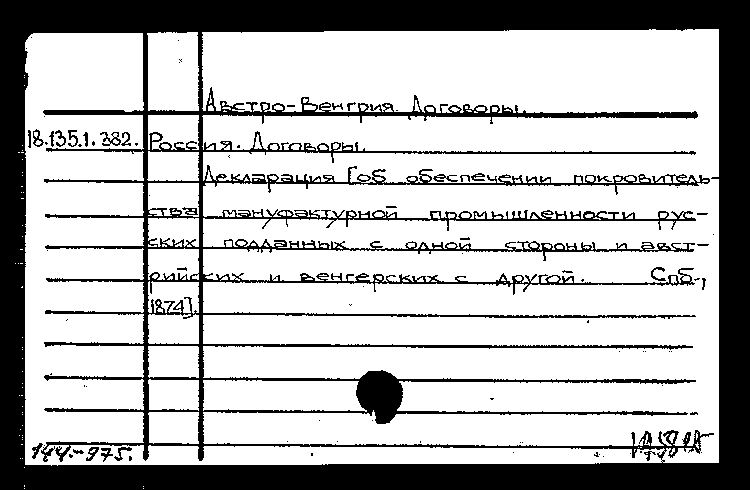 Австро-Венгрия. Договоры.
18.135.1.382. Россия. Договоры.
Декларация [об обеспечении покровитель-
ства мануфактурной промышленности рус-
ских подданных с одной стороны и авст-
рийских и венгерских с другой. Спб.,
1874].
144.-975.